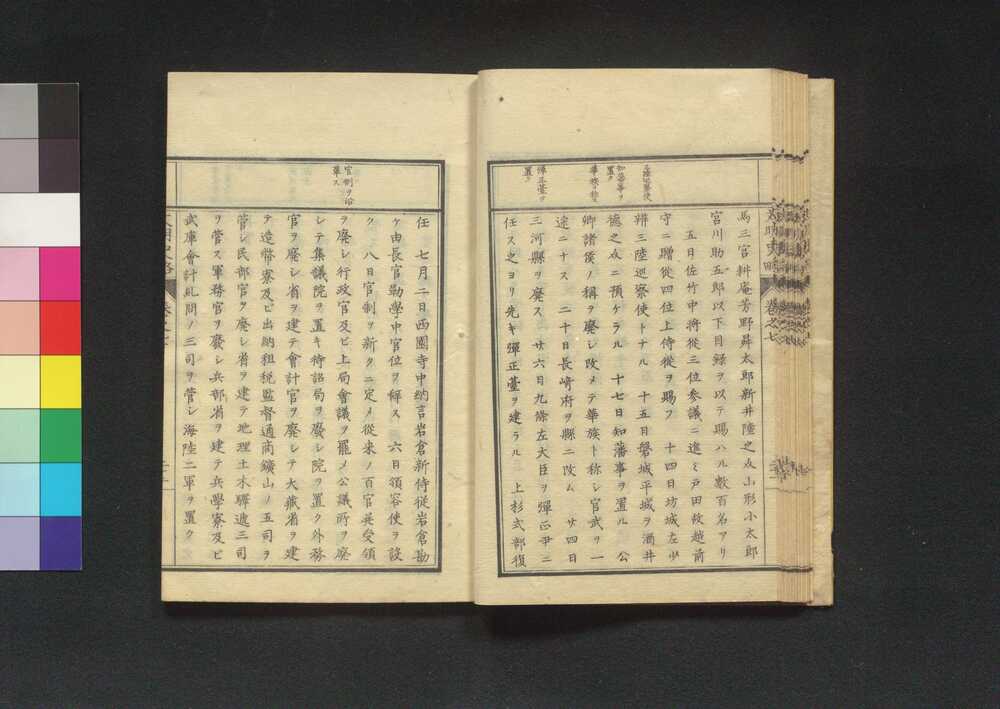 馬三宮耕庵芳野昇太郎新井陸之亟山形小太郎
宮川助五郎以下目録ヲ以テ賜ハル數百名アリ
五日佐竹中將從三位参議ニ進ミ戸田故越前
守ニ贈從四位上侍從ヲ賜フ 十四日坊城左少
辨三陸巡察使トナル 十五日磐城平城ヲ酒井
德之亟ニ預ケラル 十七日知藩事ヲ置ル 公
卿諸侯ノ稱ヲ廢シ改メテ華族ト称シ官武ヲ一
途ニナス 二十日長崎府ヲ縣ニ改ム 廿四日
三河縣ヲ廢ス 廿六日九條左大臣ヲ彈正尹ニ
任ス之ヨリ先キ彈正臺ヲ建ラル 上杉式部復
三陸巡察使
知藩事ヲ置ク
華族ノ稱
彈正臺ヲ置ク
卷之七
任 七月二日西園寺中納言岩倉新侍從岩倉勘
ケ由長官勤學中官位ヲ解ス 六日領容使ヲ設
ク 八日官制ヲ新タニ定メ從來ノ百官並受領
ヲ廢シ行政官及ヒ上局會議ヲ罷メ公議所ヲ廢
シテ集議院ヲ置キ待詔局ヲ廢シ院ヲ置ク外務
官ヲ廢シ省ヲ建テ會計官ヲ廢シテ大藏省ヲ建
テ造幣寮及ヒ出納租税監督通商鑛山ノ五司ヲ
管シ民部官ヲ廢シ省ヲ建テ地理土木驛遞三司
ヲ管ス軍務官ヲ廢シ兵部省ヲ建テ兵學寮及ヒ
武庫會計糺問ノ三司ヲ管シ海陸二軍ヲ置ク
官制ヲ沿革ス